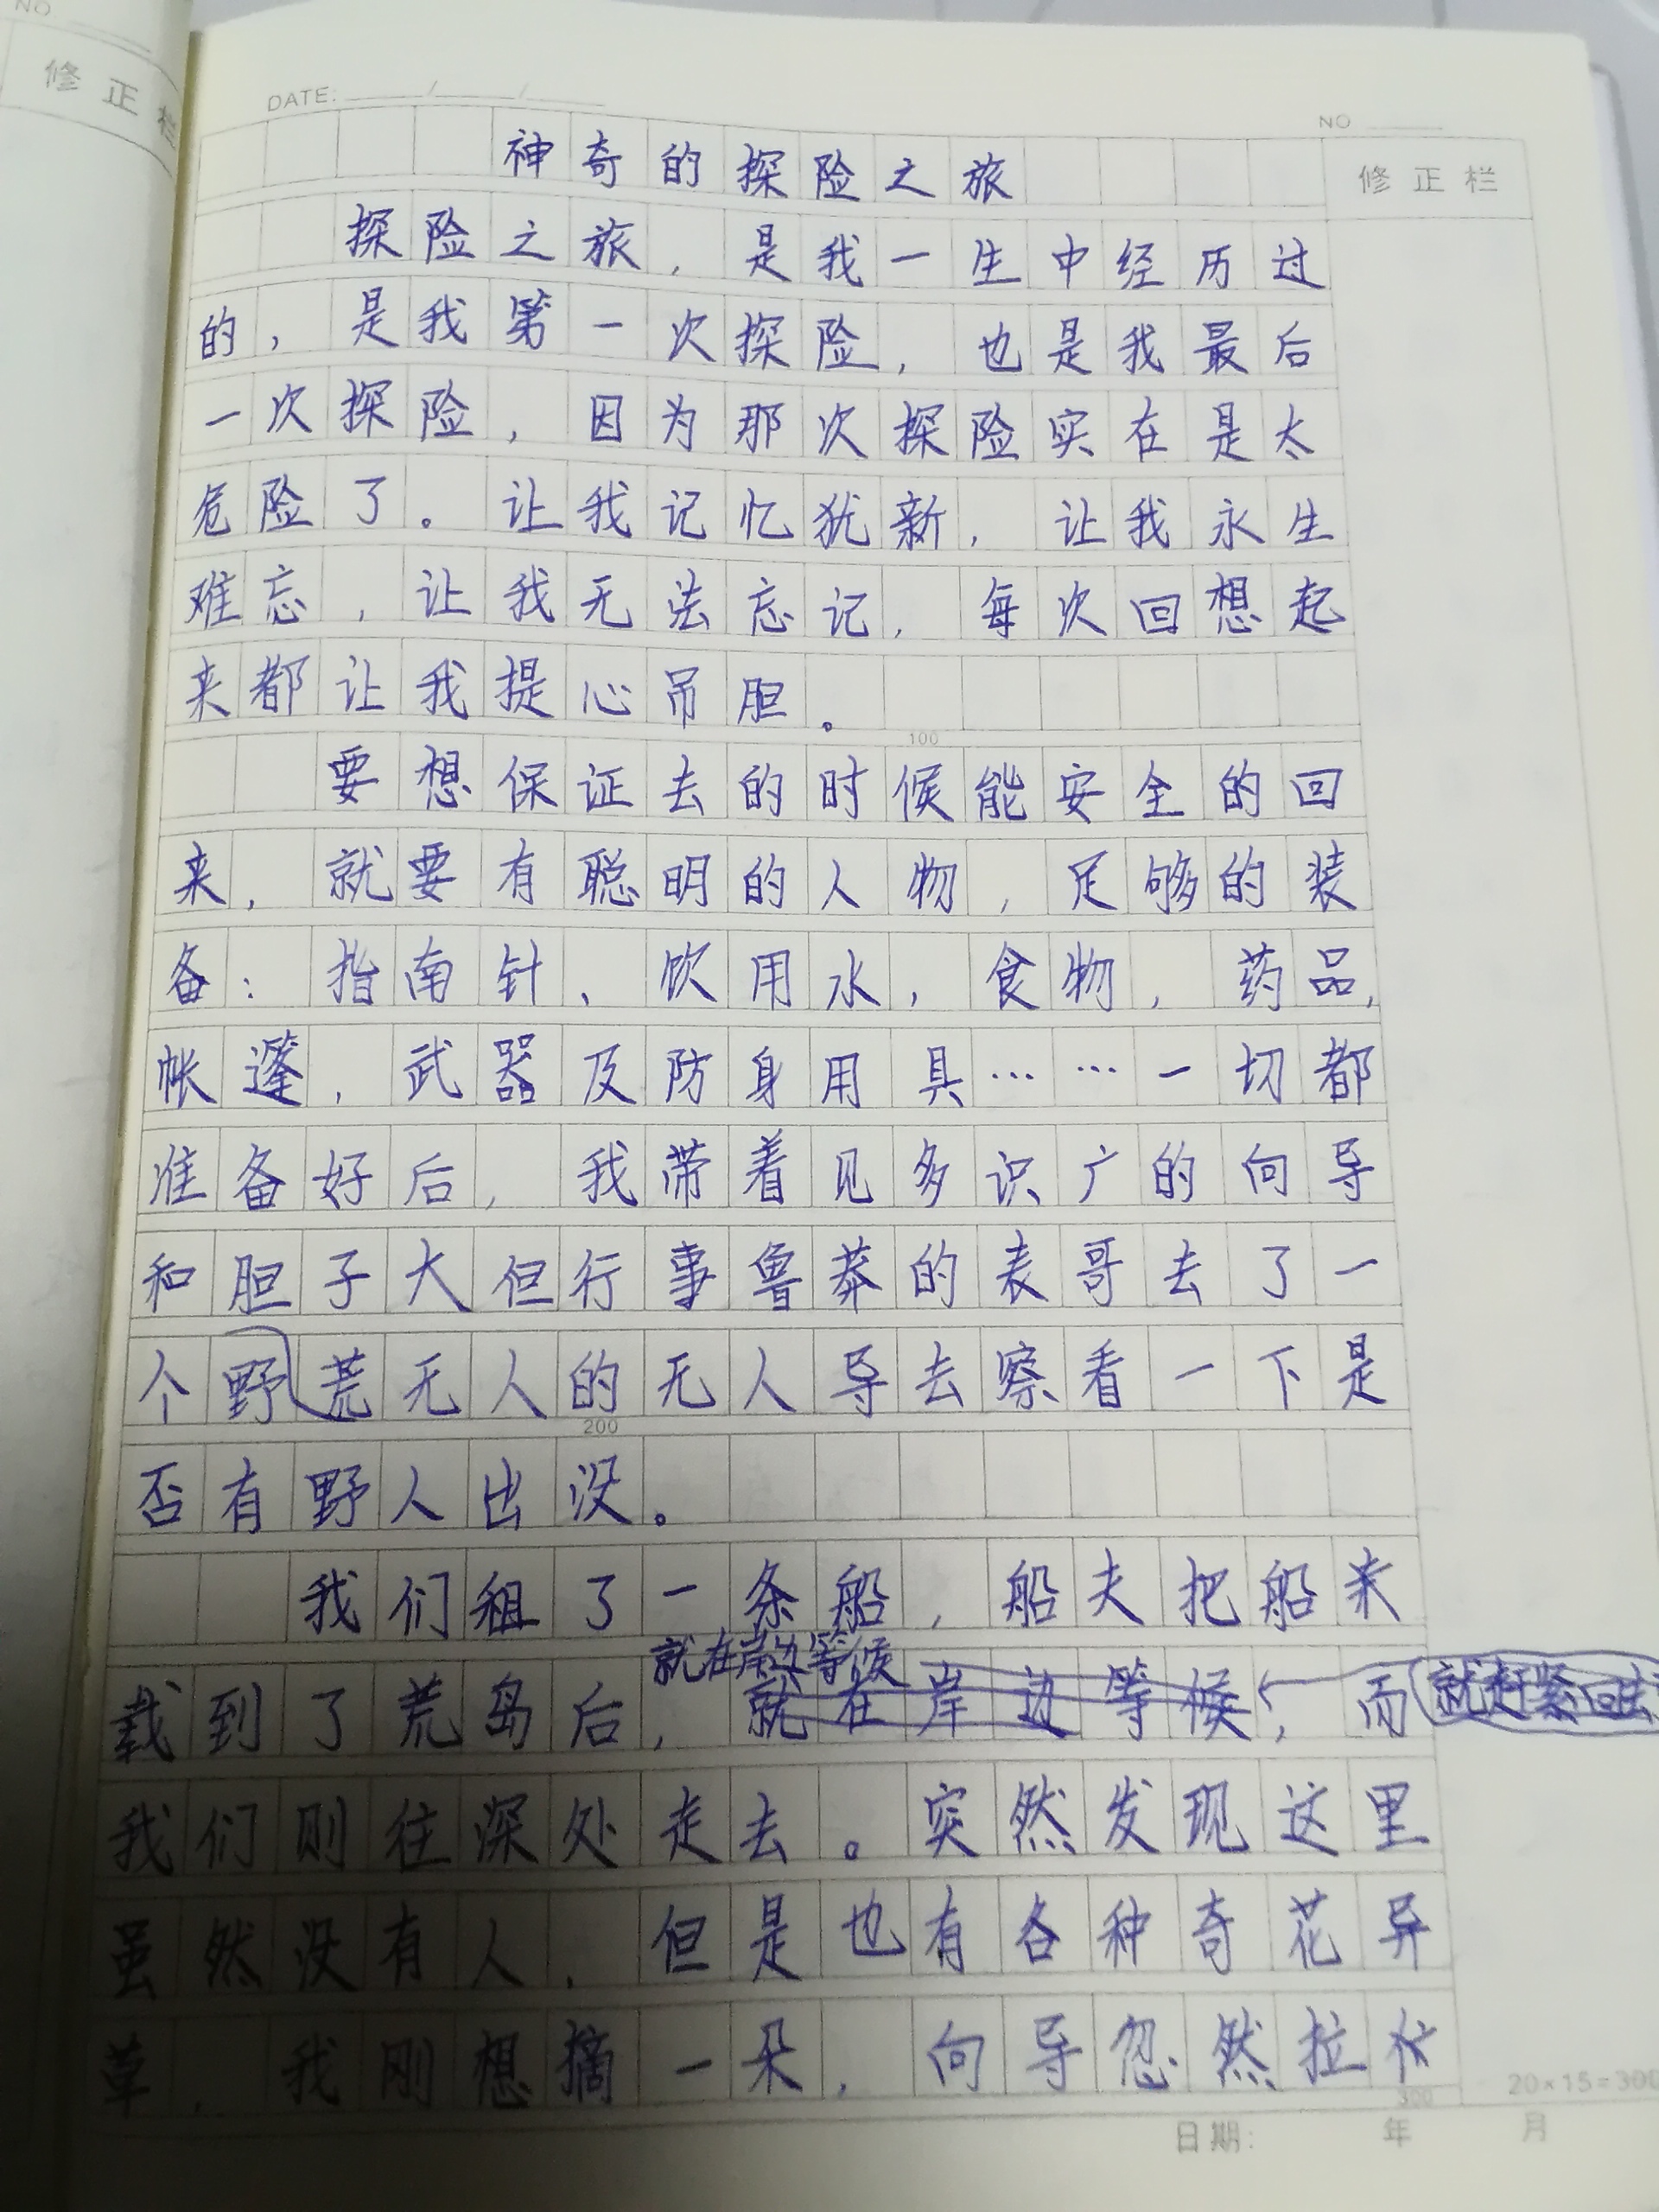 NO
修正栏
DATE: / /
NO
神奇的探险之旅
修正栏
探险之旅，是我一生中经历过
的，是我第一次探险，也是我最后
一次探险，因为那次探险实在是太
危险了。让我记忆犹新，让我永生
难忘，让我无法忘记，每次回想起
来都让我提心吊胆。
100
要想保证去的时候能安全的回
来，就要有聪明的人物，足够的装
备：指南针、饮用水，食物，药品，
帐篷，武器及防身用具……一切都
准备好后，我带着见多识广的向导
和胆子大但行事鲁莽的表哥去了一
个野荒无人的无人导去察看一下是
200
否有野人出没。
我们租了一条船，船夫把船来
就在岸边等候
载到了荒岛后，就在岸边等候，而就赶紧回去
我们则往深处走去。突然发现这里
虽然没有人，但是也有各种奇花异
草，我刚想摘一朵，向导忽然拉
300
20×15=300
日期： 年 月